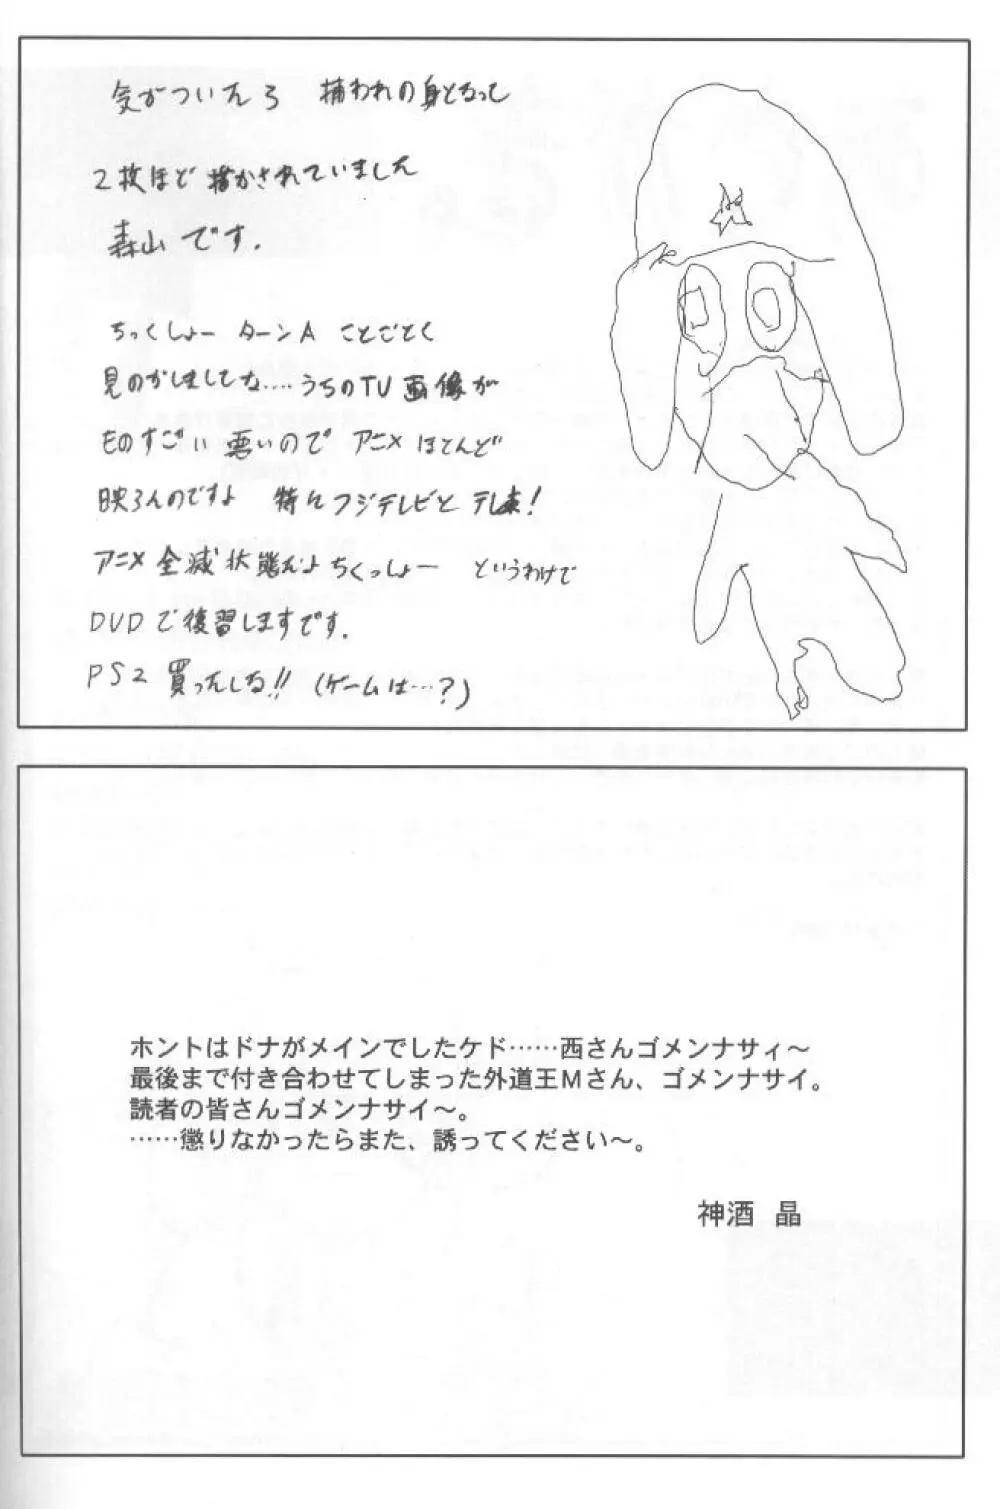 気がついたら 捕われの身となって
2枚ほど描かされていました
森山です.
ちっくしょー ターンA ことごとく
見のがしましてな....うちのTV画像が
ものすごい悪いので アニメ ほとんど
映らんのですよ 特にフジテレビとテレ東!
アニメ全滅状態だよちくっしょー というわけで
DVDで復習しますです.
PS2 買ったしな!! (ゲームは…?)
ホントはドナがメインでしたケド……西さんゴメンナサィ～
最後まで付き合わせてしまった外道王Mさん、ゴメンナサイ。
読者の皆さんゴメンナサイ～。
……懲りなかったらまた、誘ってください～。
神酒 晶